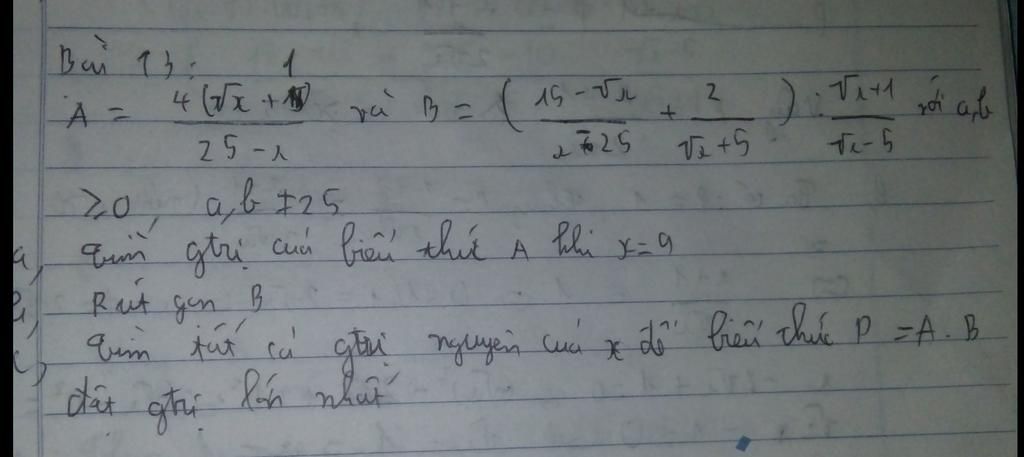 Bài 13:
A = 4(√x + 1) / 25 - x và B = (15 - √x / x - 25 + 2 / √x + 5) : √x + 1 / √x - 5 với a,b
≥ 0, a,b ≠ 25
a, Tìm gtrị của biểu thức A khi x = 9
b, Rút gọn B
c, Tìm tất cả gtrị nguyên của x để biểu thức P = A . B
đạt gtrị lớn nhất